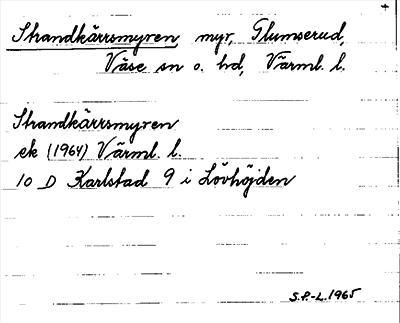 Strandkärrsmyren, myr, Glumserud,
Väse sn o. hd, Värml. l.
Strandkärrsmyren
ek (1964) Värml. l.
10 D Karlstad 9 i Lövhöjden
S.P.-L. 1965